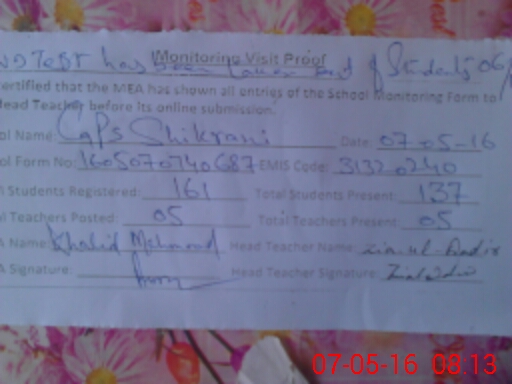 Monitoring Visit Proof
Test has been taken of Students 06
certified that the MEA has shown all entries of the School Monitoring Form to
Head Teacher before its online submission.
ol Name: Ggps Shikrani Date: 07-05-16
ol Form No: 1605070740687 EMIS Code: 31320240
Students Registered: 161 Total Students Present: 137
l Teachers Posted: 05 Total Teachers Present: 05
A Name: Khalid Mehmood Head Teacher Name: Zia-ul-Qadir
A Signature: Head Teacher Signature:
07-05-16 08:13